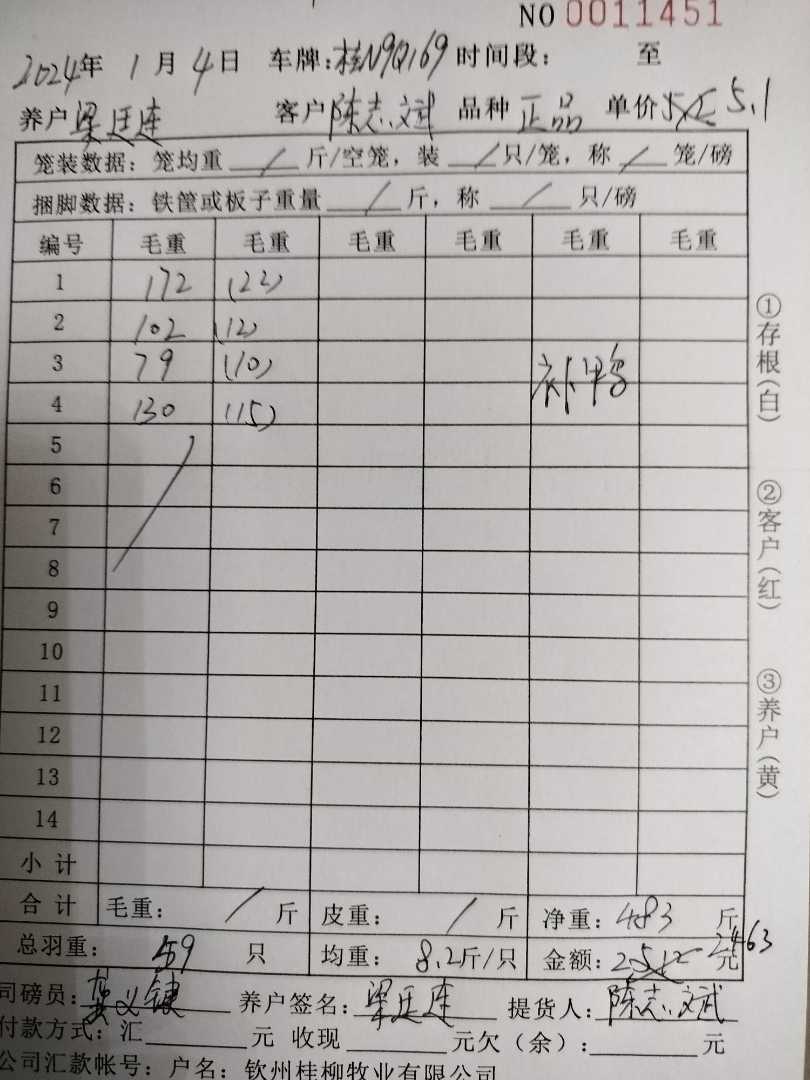 NO 0011451
2024年 1月4日 车牌:桂N9Q169 时间段: 至
养户 梁廷连 客户 陈志斌 品种 正品 单价 5.1
笼装数据: 笼均重 / 斤/空笼, 装 / 只/笼, 称 / 笼/磅
捆脚数据: 铁筐或板子重量 / 斤, 称 / 只/磅
编号 毛重 毛重 毛重 毛重 毛重 毛重
1 172 (22)
2 102 (12)
3 79 (10) 补鸭
4 130 (15)
5
6
7
8
9
10
11
12
13
14
小计
合计 毛重: / 斤 皮重: / 斤 净重: 483 斤
总羽重: 59 只 均重: 8.2斤/只 金额: 2463 元
司磅员: 义键 养户签名: 梁廷连 提货人: 陈志斌
付款方式: 汇 元 收现 元欠(余): 元
公司汇款帐号: 户名: 钦州桂柳牧业有限公司
①存根(白)
②客户(红)
③养户(黄)